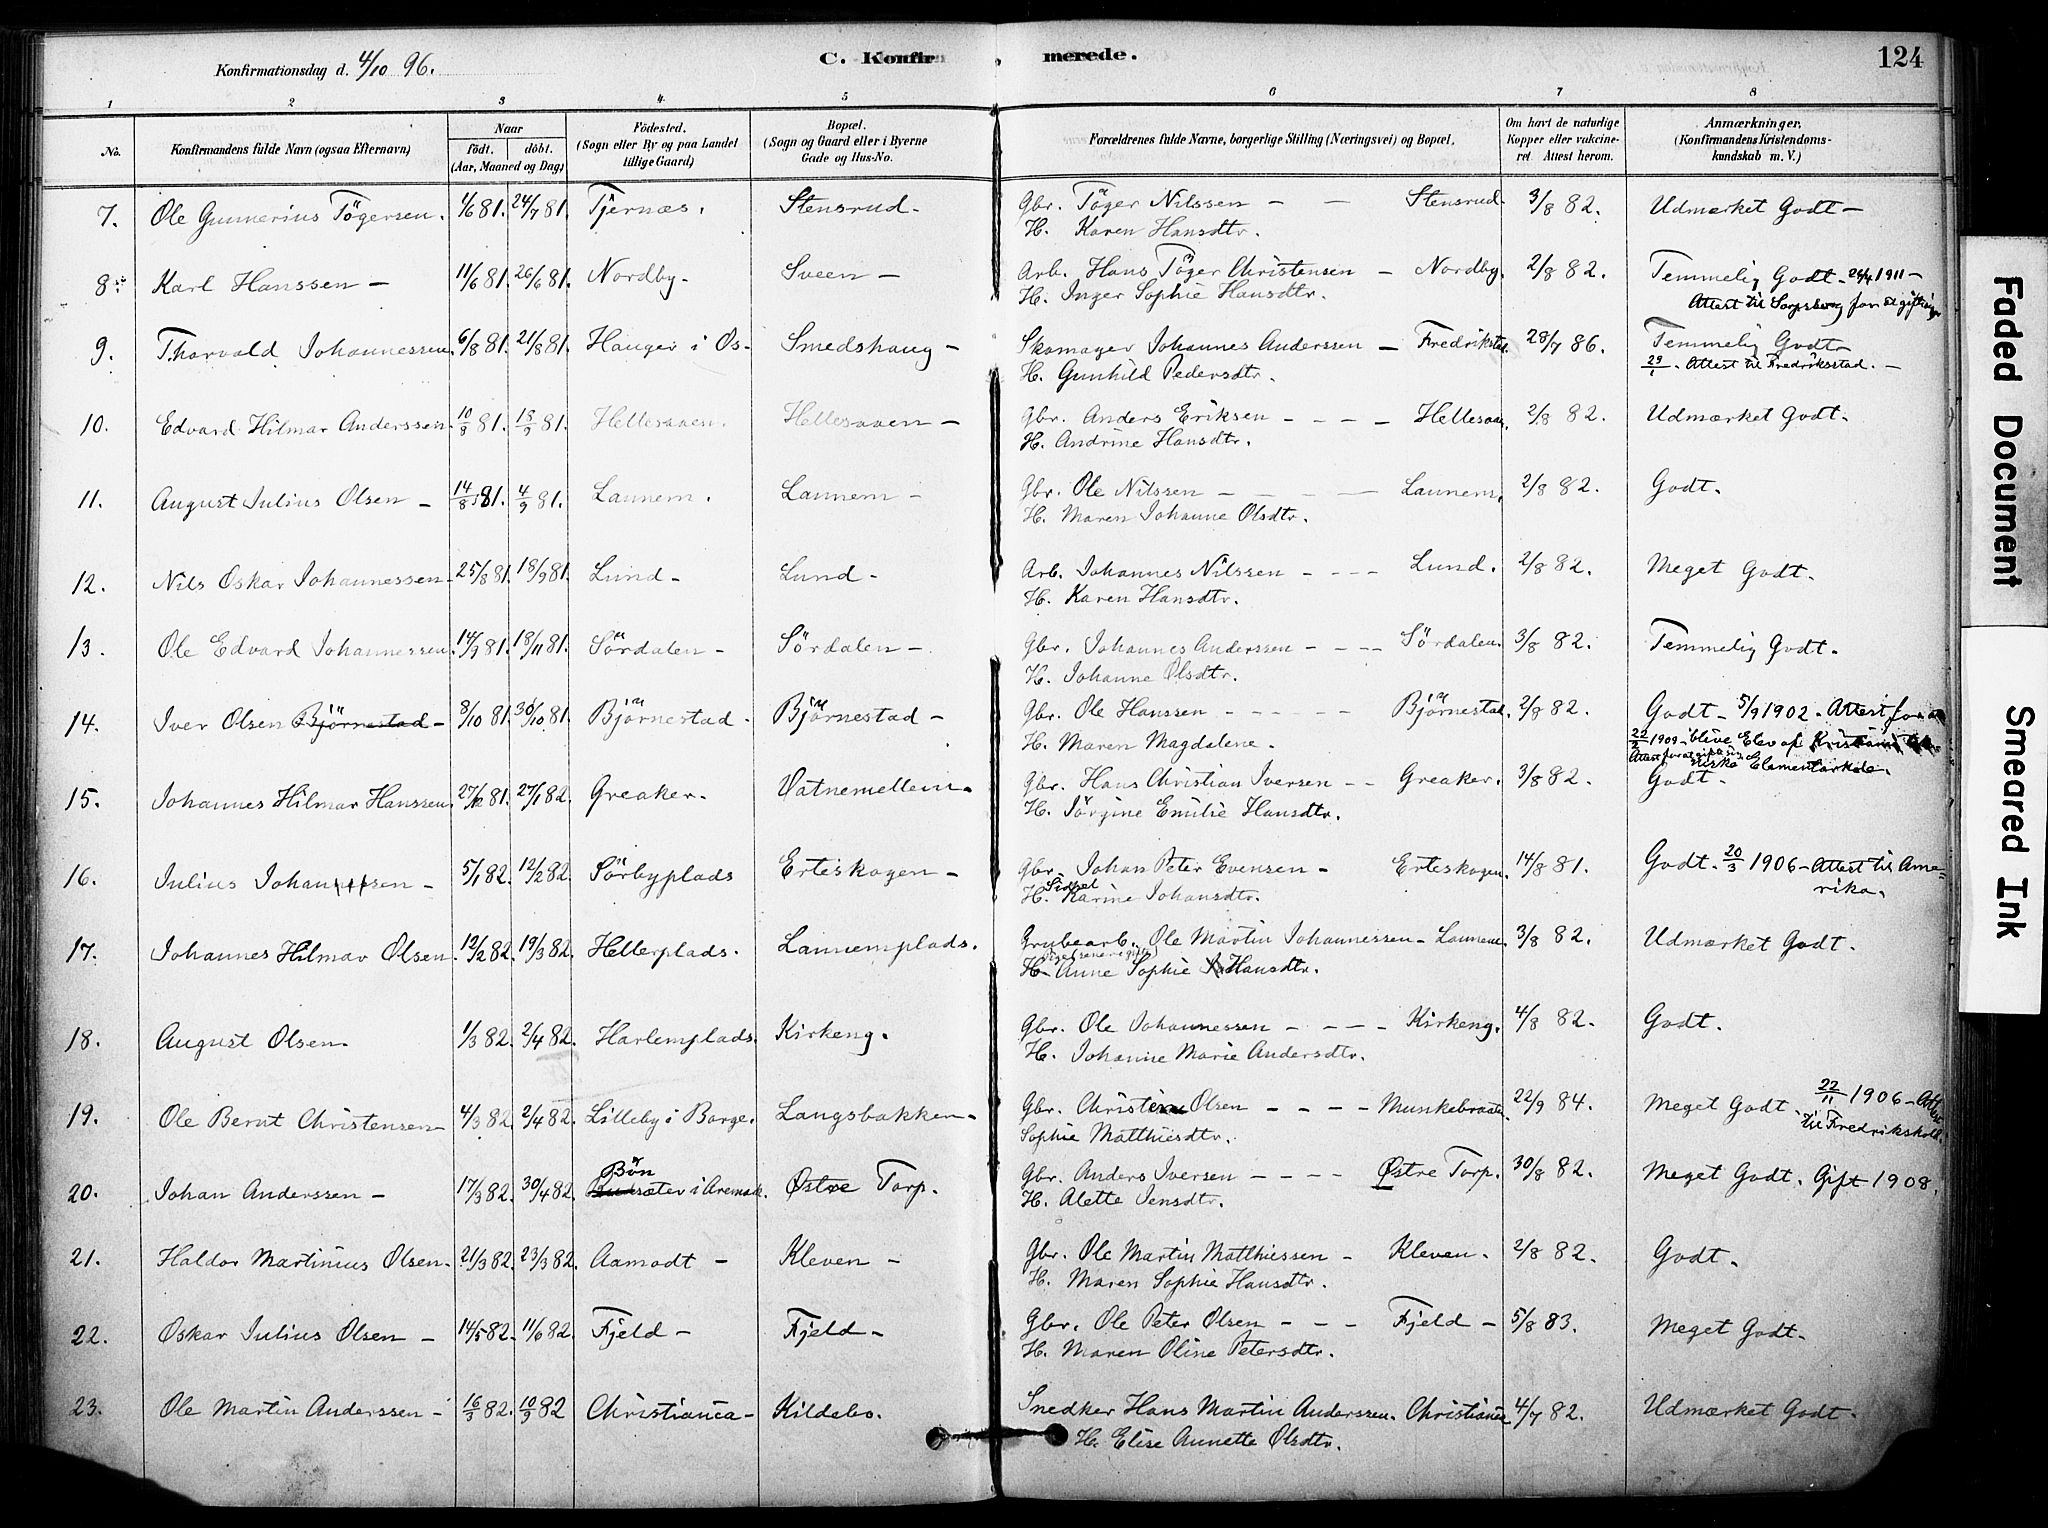 Konfirmationsdag d. 4/10 96.
C. Konfirmerede.
124
1 2 3 4. 5 6 7 8
No.
Konfirmandens fulde Navn (ogsaa Efternavn)
Naar
födt. döbt.
(Aar, Maaned og Dag)
Födested.
(Sogn eller By og paa Landet
tillige Gaard)
Bopæl.
(Sogn og Gaard eller i Byerne
Gade og Hus-No.
Forældrenes fulde Navne, borgerlige Stilling (Næringsvei) og Bopæl.
Om havt de naturlige
Kopper eller vakcine-
ret. Attest herom.
Anmærkninger.
(Konfirmandens Kristendoms-
kundskab m. V.)
7. Ole Gunnerius Tögersen. 4/6 81. 24/7 81. Tjernæs. Stensrud. Gbr. Töger Nilssen — — Stensrud. 3/8 82. Udmærket Godt —
H. Karen Hansdtr.
8. Karl Hanssen — 11/6 81. 26/6 81. Nordby. Sveen — Arb. Hans Töger Christensen — Nordby. 2/8 82. Temmelig Godt. 26/4 1911 —
H. Inger Sophie Hansdtr. Attest til Sarpsborg for at giftes
9. Thorvald Johannessen. 6/8 81. 21/8 81. Hauger i Os- Smedshaug — Skomager Johannes Anderssen — Fredrikstad 28/7 86. Temmelig Godt —
H. Gunhild Pedersdtr. 29/1. Attest til Fredriksstad. —
10. Edvard Hilmar Anderssen. 10/8 81. 18/9 81. Hellesaaen. Hellesaaen — Gbr. Anders Eriksen - - - - Hellesaaen 2/8 82. Udmærket Godt.
H. Andrine Hansdtr.
11. August Julius Olsen — 14/8 81. 4/9 81. Lannem. Lannem — Gbr. Ole Nilssen — — — — Lannem. 2/8 82. Godt.
H. Maren Johanne Olsdtr.
12. Nils Oskar Johannessen. 25/8 81. 18/9 81. Lund — Lund — Arb. Johannes Nilssen - - - - Lund. 2/8 82. Meget Godt.
H. Karen Hansdtr.
13. Ole Edvard Johannessen. 14/9 81. 18/11 81. Sördalen — Sördalen — Gbr. Johannes Anderssen - - - - Sördalen. 3/8 82. Temmelig Godt.
H. Johanne Olsdtr.
14. Iver Olsen Björnestad — 8/10 81. 30/10 81. Björnestad. Björnestad — Gbr. Ole Hanssen - - - - Björnestad. 2/8 82. Godt — 5/9 1902. Attest for at
H. Maren Magdalene. 22/2 1909 blive Elev af Kristiania
Attest for at giftes niske Elementarskole.
15. Johannes Hilmar Hanssen. 27/12 81. 27/1 82. Greaker. Vatnemellem. Gbr. Hans Christian Iversen - - Greaker. 3/8 82. Godt.
H. Jörgine Emilie Hansdtr.
16. Julius Johansen — 5/1 82. 12/2 82. Sörbyplads Erteskogen — Gbr. Johan Peter Evensen — Erteskogen. 14/8 81. Godt. 20/3 1906 — Attest til Ame-
H. Sidsel Karine Johansdtr. rika.
17. Johannes Hilmar Olsen. 12/2 82. 19/3 82. Hellerplads. Lannemplads. Grubearb. Ole Martin Johannessen — Lannem. 3/8 82. Udmærket Godt.
H. Anne Sophie Hansdtr.
18. August Olsen. 1/3 82. 2/4 82. Harlemplads. Kirkeng. Gbr. Ole Johannessen - - - - Kirkeng. 4/8 82. Godt.
H. Johanne Marie Andersdtr.
19. Ole Bernt Christensen 4/3 82. 2/4 82. Lilleby i Borge. Langsbakken — Gbr. Christen Olsen - - - - Munkebraaten 22/9 84. Meget Godt. 22/11 1906 — Attest
Sophie Matthiesdtr. til Fredrikshald.
20. Johan Anderssen — 17/3 82. 30/4 82. Bön sæter i Aremark. Østre Torp. Gbr. Anders Iversen - - - - Østre Torp. 30/8 82. Meget Godt. Gift 1908.
H. Alette Jensdtr.
21. Haldor Martinius Olsen. 21/3 82. 23/3 82. Aamodt — Kleven — Gbr. Ole Martin Matthiessen — Kleven. 2/8 82. Godt.
H. Maren Sophie Hansdtr.
22. Oskar Julius Olsen — 14/5 82. 11/6 82. Fjeld — Fjeld — Gbr. Ole Peter Olsen - - - Fjeld — 5/8 83. Meget Godt.
H. Maren Oline Petersdtr.
23. Ole Martin Anderssen — 16/3 82. 10/9 82 Christiania — Kildebo. Snedker Hans Martin Anderssen. Christiania 4/7 82. Udmærket Godt.
H. Elise Annette Olsdtr.
Faded Document
Smeared Ink